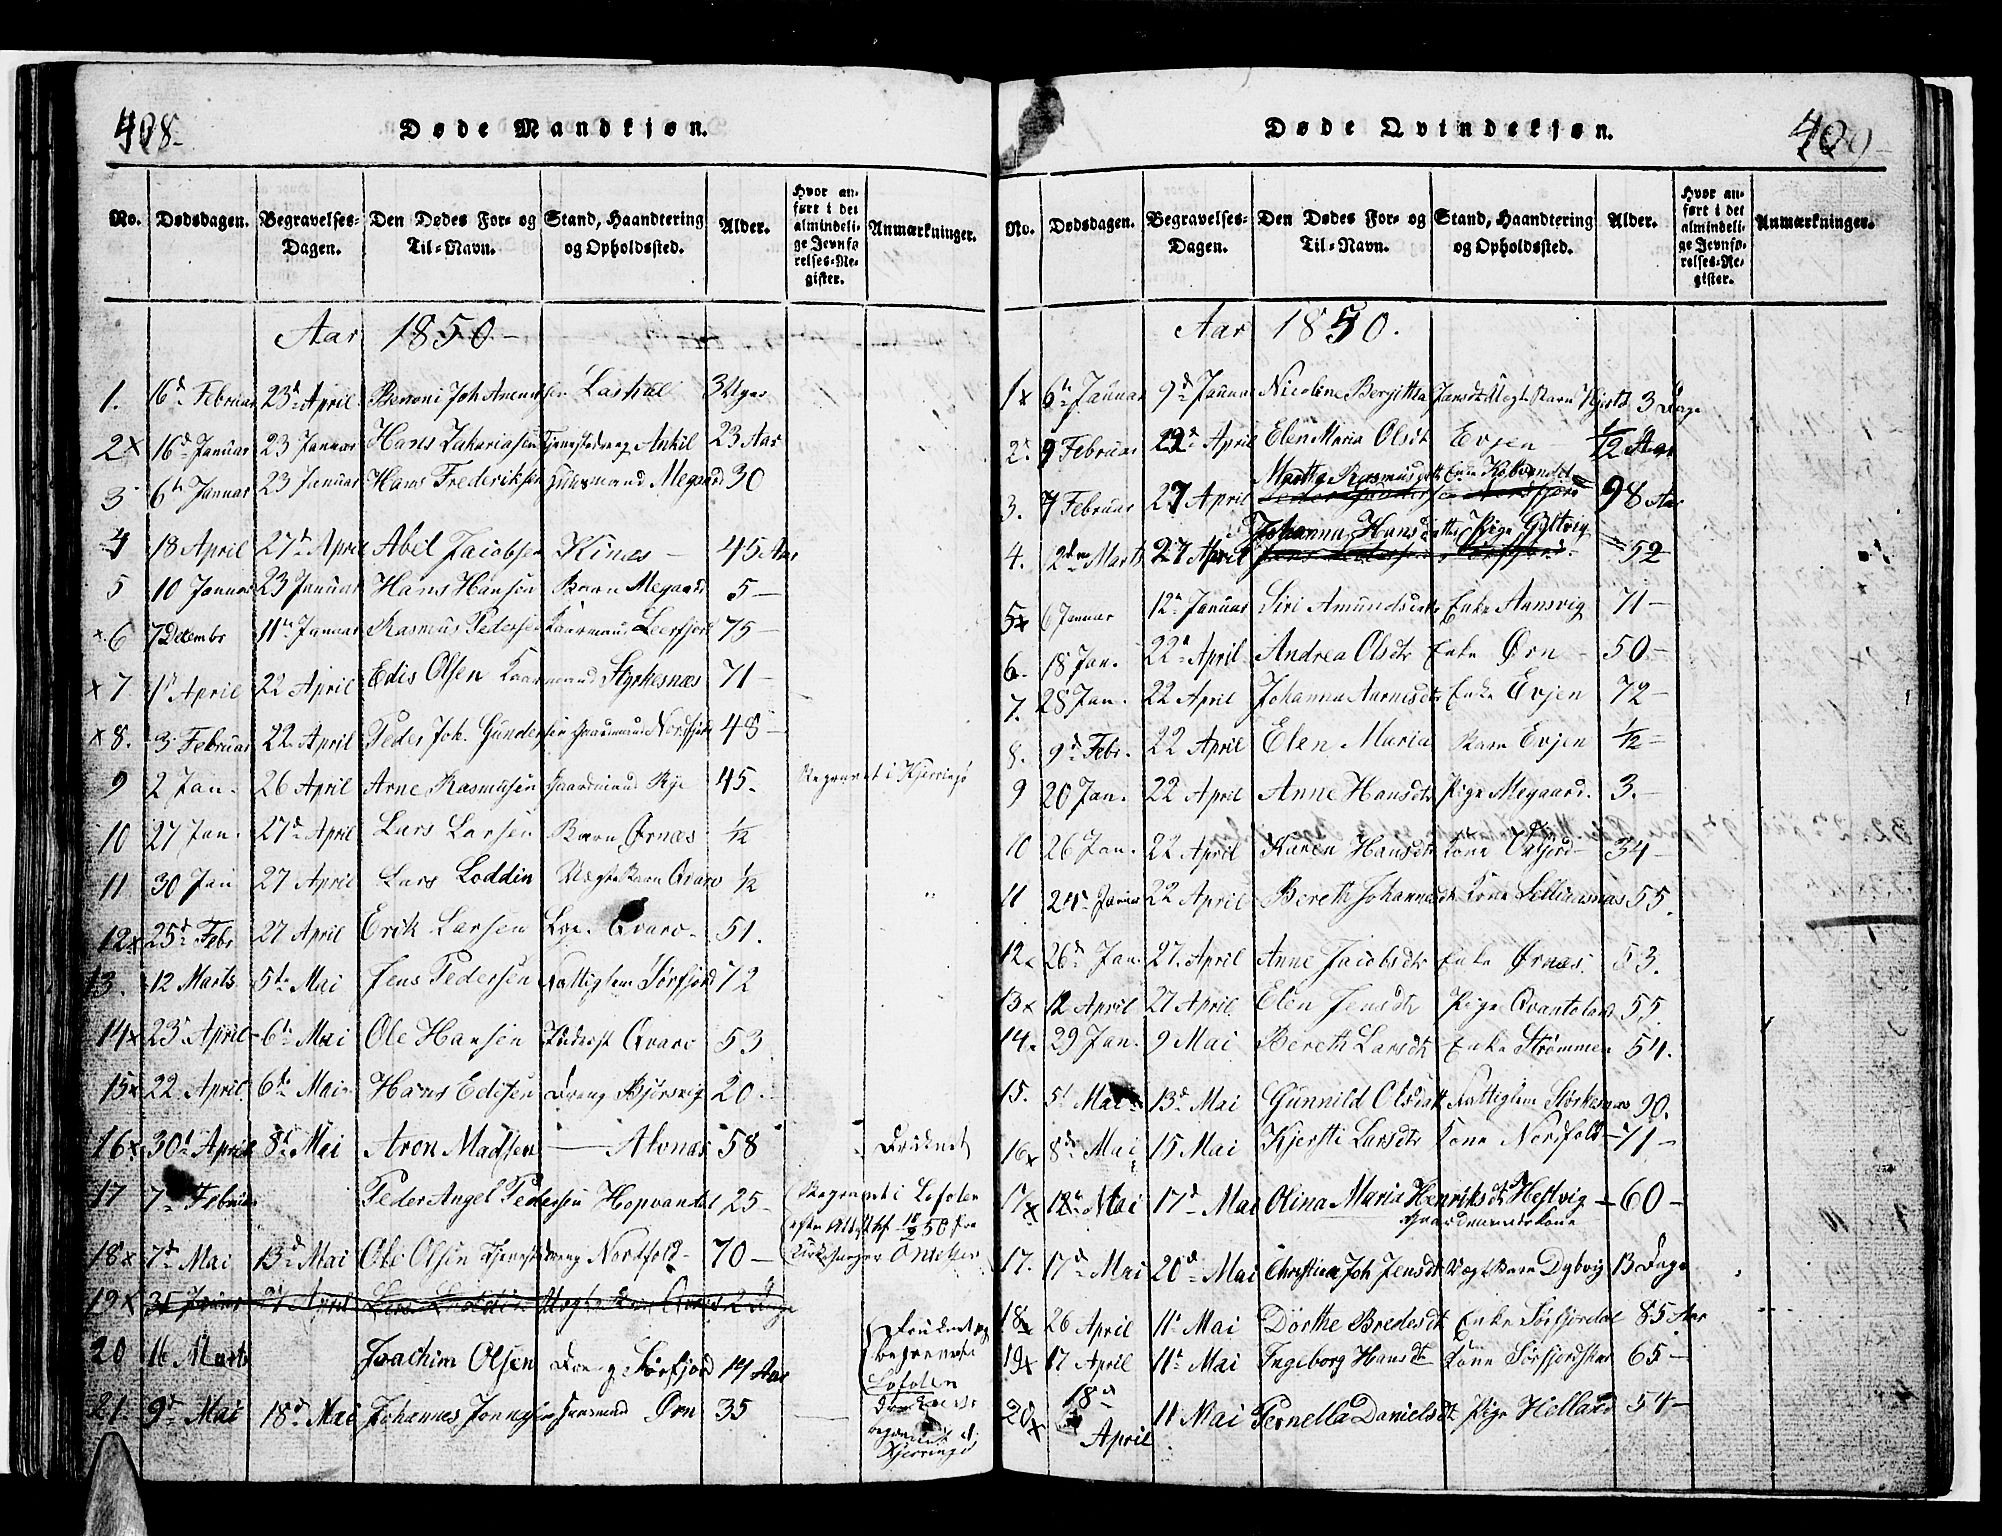 408-
Døde Mandkiøn.
No. Dødsdagen. Begravelses-Dagen. Den Dødes For- og Til-Navn. Stand, Haandtering og Opholdssted. Alder. Hvor anført i det almindelige Jevnførelses-Register. Anmærkninger.
Aar 1850-
1. 16d Februar 23d April Benoni Joh Amundsen 3 Uger
2x 16d Januar 23 Januar Hans Zakariasen Tjenestedreng Ankil 23 Aar
3 6te Januar 23 Januar Hans Frederiksen Huusmand Megaard 30
4 18 April 27de April Abel Jacobsen Kines - 45 Aar
5 10 Januar 23 Januar Hans Hansen Barn Megaard 5-
x6 7 Decembr 11te Januar Rasmus Pedersen Kaarmand Leerfjord 75-
x7 1st April 22 April Edis Olsen Kaarmand Styrkesnæs 71-
x8. 3 Februar 22 April Peder Joh. Gundersen Gaardmand Nordfjord 48-
9 2 Jan. 26 April Arne Rasmusen Gaardmand Rye 45. Begravet i Kjerringø
10 27 Jan. 27d April Lars Larsen Barn Ørnæs ½
11 30 Jan 27 April Lars Loddin Uægte Barn Qvarv ½
12x 25d Febr 27 April Erik Larsen Qvarv- 51.
13. 12 Marts 5te Mai Jens Pedersen Fattiglem Sørfjord 72
14x 23d April- 6te Mai Ole Hansen Qvarv 53
15x 22 April 6te Mai Hans Edisen Dreng Bjørsvig 20.
16x 30d April 8de Mai Aron Madsen - Alvnæs 58 Druknet
17 7de Februar Peder Angel Pedersen Hopvandet 25- Begravet i Lofoten
50 fra
18x 7de Mai 13d Mai Ole Olsen Tjenestedreng Nordfold- 70- Kirkesanger
19x 31 Januar 27 April Lars Loddin Uægte Barn Qvarv
20 16 Marts Joachim Olsen Dreng Sørfjord 19 Aar Druknet og
begravet i
Lofoten
21. 9de Mai 18d Mai Johannes Huusmand Ørn 35
begravet i
Kjerringø
409-
Døde Qvindekiøn.
No. Dødsdagen. Begravelses-Dagen. Den Dødes For- og Til-Navn. Stand, Haandtering og Opholdssted. Alder. Hvor anført i det almindelige Jevnførelses-Register. Anmærkninger.
Aar 1850.
1x 6te Januar 9d Januar Nicoline Bergitta Jansdtr Uægte Barn 3 Dage
2. 9 Februar 22d April Elen Maria Olsdtr Evjen ½ Aar
Martha Rasmusdtr Enke Kobvandet
3. 7 Februar 27 April 98 Aar
Johanna Hansdatter Pige Gyltvig
4. 2den Marts 27 April 52
5x 6 Januar 12te Januar Siri Amundsdtr Enke Aansvig 71-
6. 18 Jan. 22d April Andrea Olsdtr Enke Ørn - 50-
7. 28 Jan. 22 April Johanna Aarnesdtr Enke Evjen 72-
8. 9d Febr. 22 April Elen Maria Barn Evjen ½-
9 20 Jan. 22 April Anne Hansdtr Pige Megaard. 3.-
10 26 Jan. 22 April Karen Hansdtr Kone 34-
11 24de Januar 22 April Bereth Johannesdtr Kone 55.
12x 26d Jan. 27. April Anne Jacobsdtr Enke Ørnæs. 53.
13x 12 April 27 April Elen Jensdtr Pige 55.
14. 29 Jan. 9 Mai Bereth Larsdtr Enke Strømmen 54.
15. 5t Mai 13d Mai Gunnild Olsdatt Fattiglem Størkesnæs 90.
16x 8de Mai 15 Mai Kjersti Larsdtr Kone Nordfold- 71-
17x 12te Mai 17d Mai Olina Maria Henriksdtr Hestvig - 60-
Gaardmands Kone
17. 17d Mai 20d Mai Christina Joh Jensdtr Uægte Barn Dybvig 13 Dage
18x 26 April 11te Mai Dorthe Bredesdtr Enke Sørfjordal 85 Aar
19x 17 April 11te Mai Ingeborg Hansdtr Kone 65-
20x 18de April 11t Mai Pernella Danielsdtr Pige Helland 54-